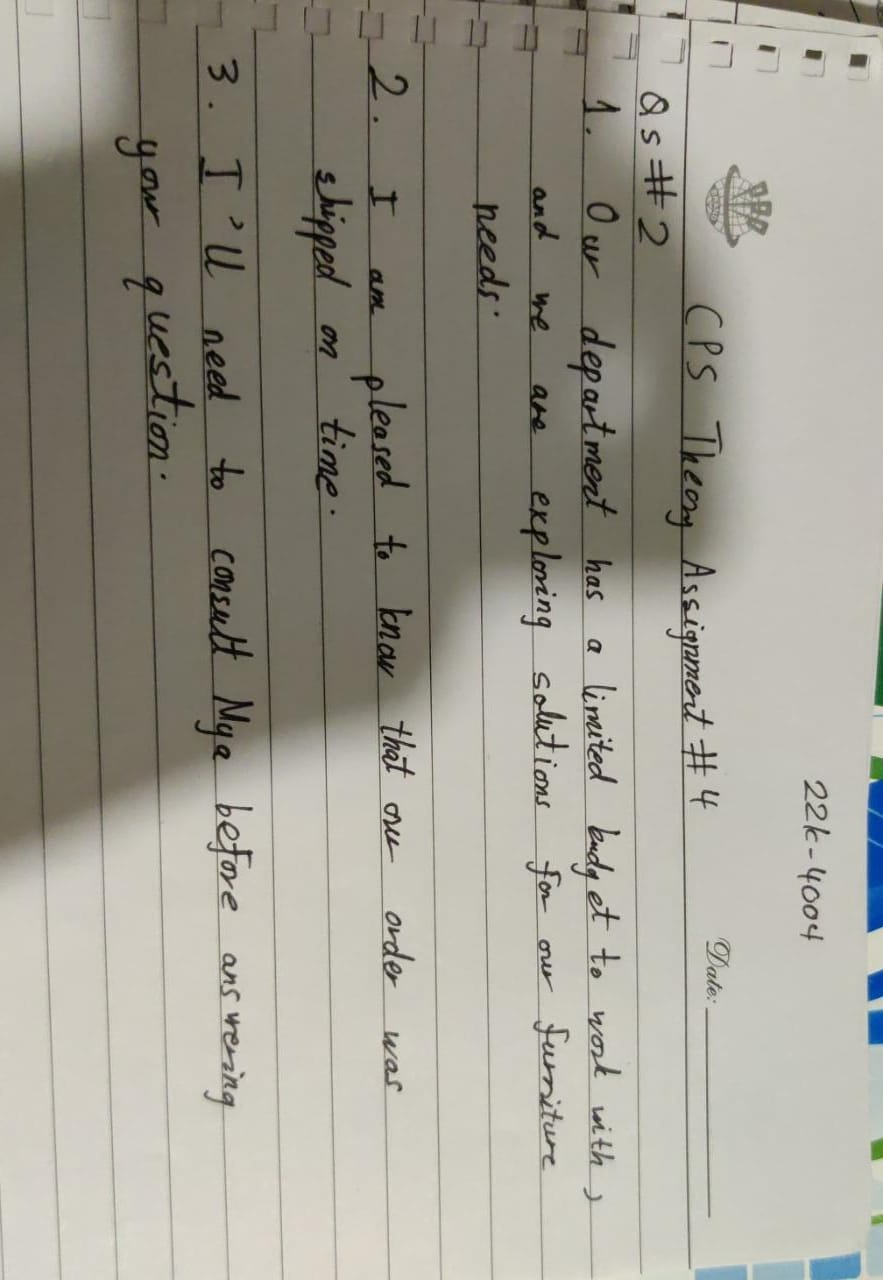 22k-4004
Date:
CPS Theory Assignment # 4
Qs # 2
1. Our department has a limited budget to work with,
and we are exploring solutions for our furniture
needs.
2. I am pleased to know that our order was
shipped on time.
3. I'll need to consult Mya before answering
your question.